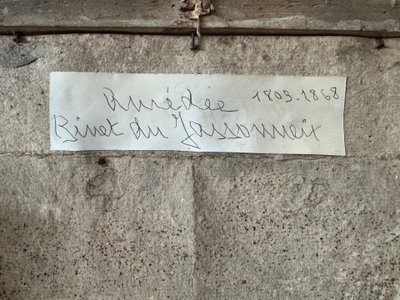 Amédée 1803-1868
Binet du Jassonneix